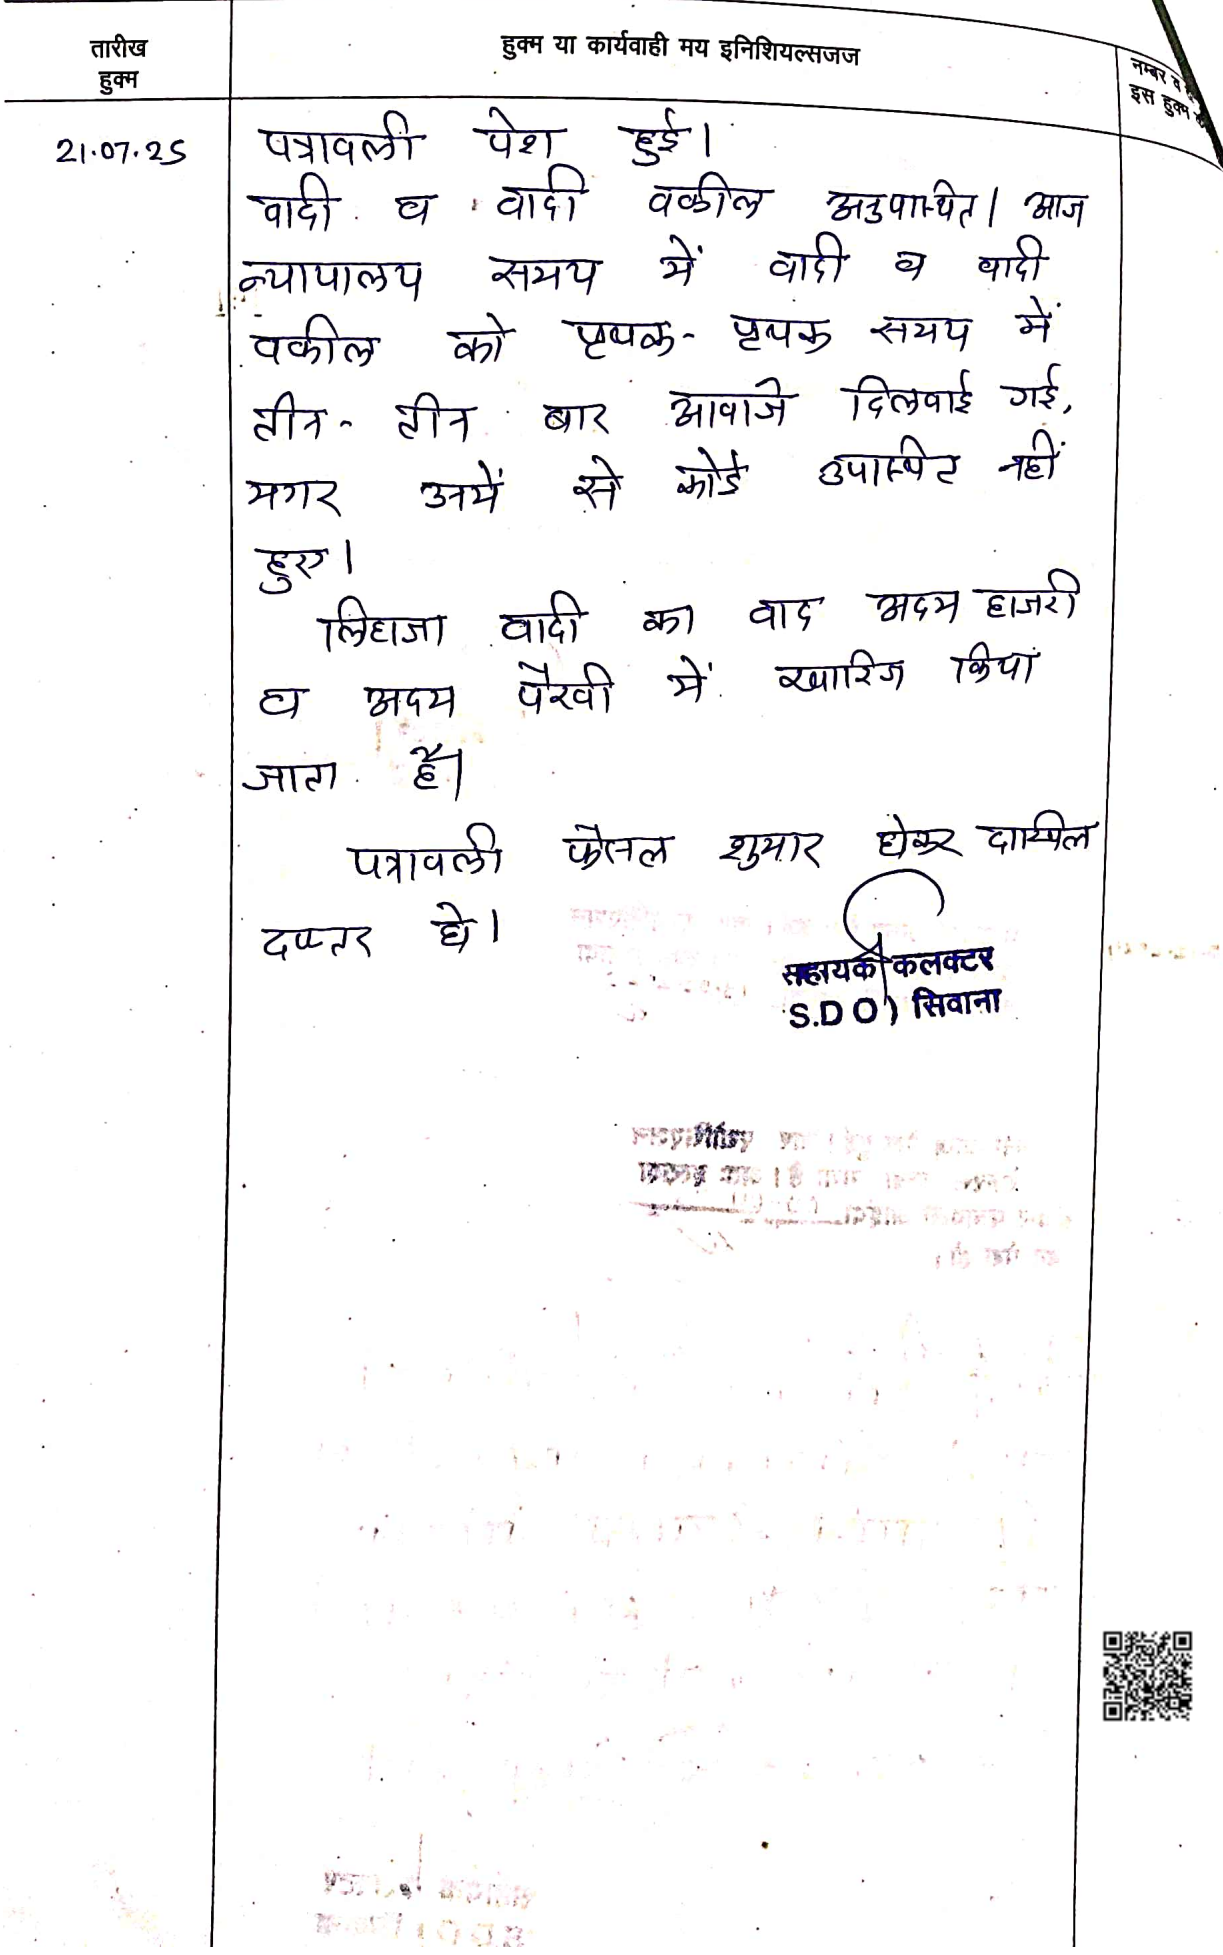 तारीख
हुक्म
हुक्म या कार्यवाही मय इनिशियल्सजज
नम्बर व
इस हुक्म
21.07.25
पत्रावली पेश हुई।
वादी व वादी वकील अनुपस्थित। आज
न्यायालय समय में वादी व वादी
वकील को पृथक- पृथक समय में
तीन- तीन बार आवाजे दिलवाई गई,
मगर उनमें से कोई उपस्थित नहीं
हुए।
लिहाजा वादी का वाद अदम हाजरी
व अदम पैरवी में खारिज किया
जाता है।
पत्रावली फैसल शुमार होकर दाखिल
दफ्तर हो।
सहायक कलक्टर
S.D O) सिवाना